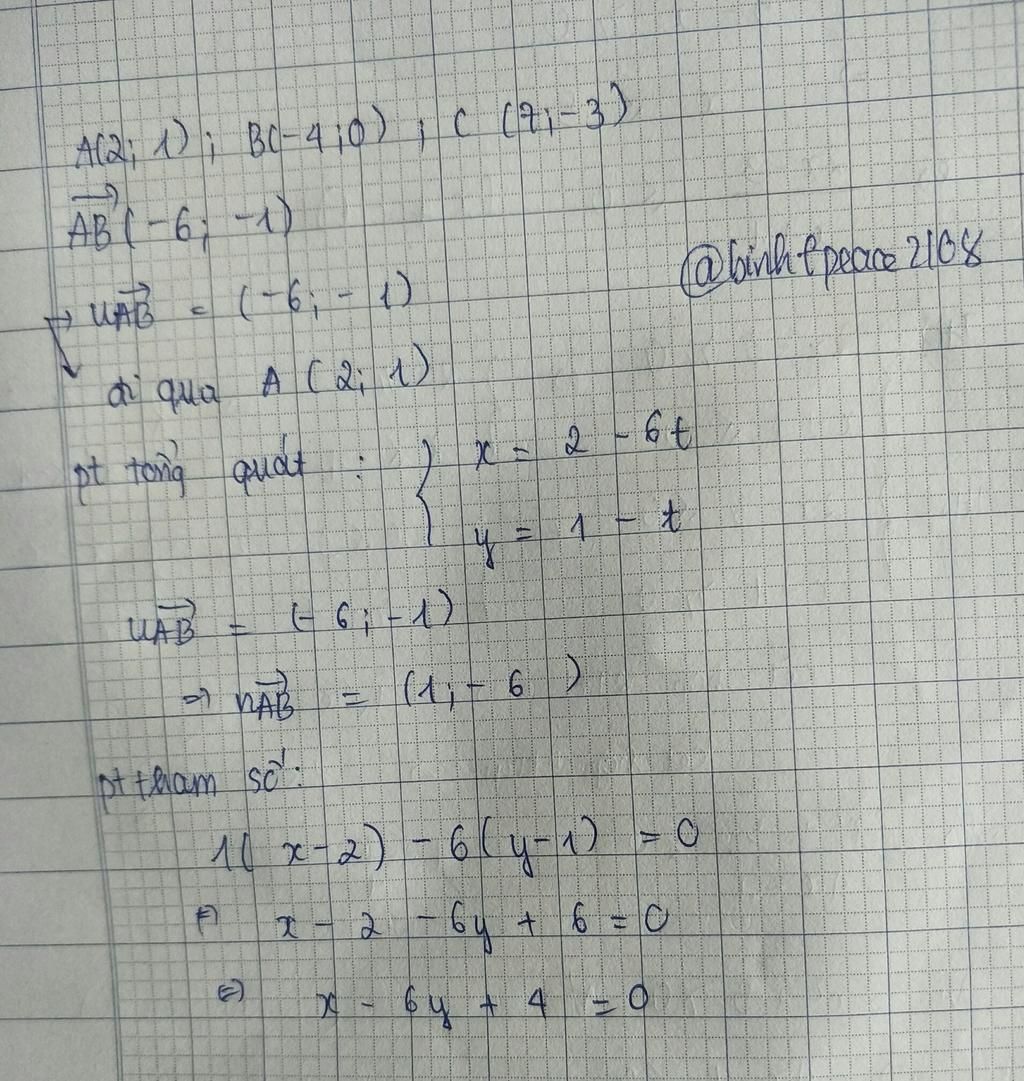 A(2; 1); B(-4;0); C (7;-3)
AB(-6; -1)
@binhtpeace2108
→ uAB = (-6; -1)
đi qua A (2; 1)
pt tổng quát : { x = 2 - 6t
y = 1 - t
uAB = (-6; -1)
=> nAB = (1; -6)
pt tham số:
1(x-2) - 6(y-1) = 0
<=> x - 2 - 6y + 6 = 0
<=> x - 6y + 4 = 0